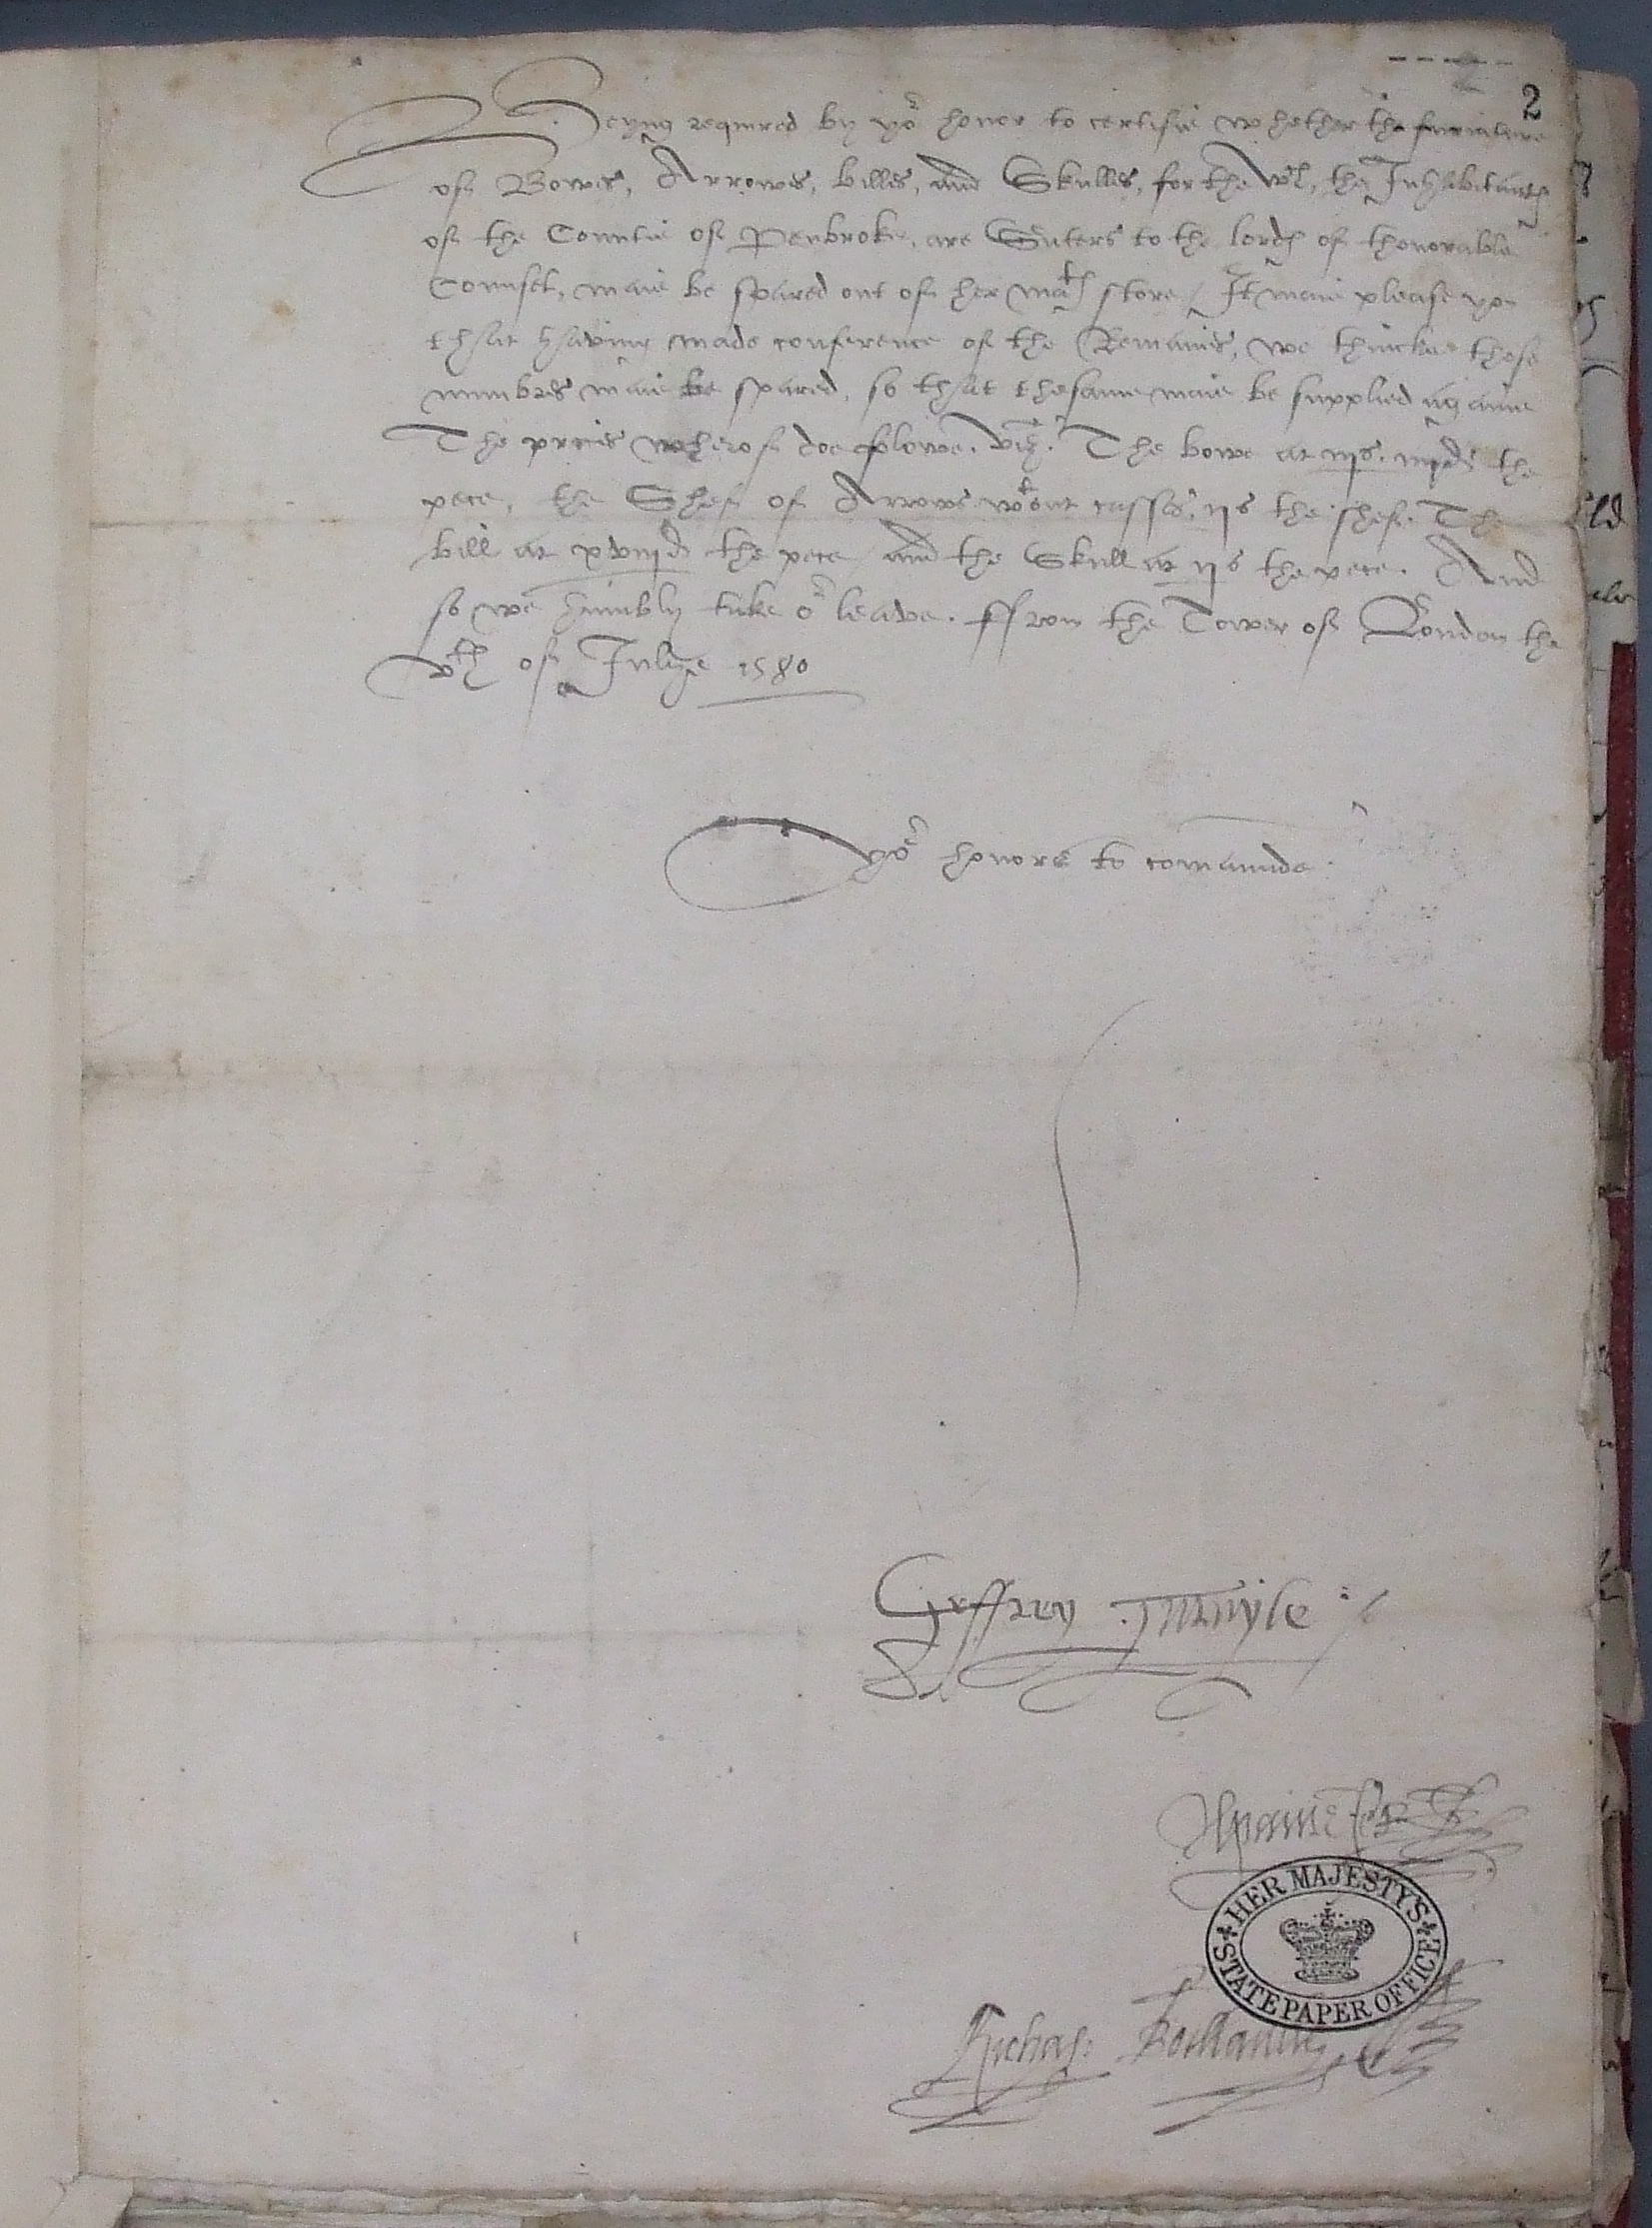 2
Beyng required by yor honor to certifie whether the furniture
of Bowes, Arrowes, billes, and Skulles, for the wch, the Inhabitants
of the Countie of Penbroke, are Suters to the lordes of thonorable
Counsel, maie be spared out of her mats store / It maie please you
that having made conference of the Remaines, we thincke those
numbres maie be spared, so that thesame maie be supplied againe
The prices wherof doe folowe. viz. The bowe at iijs. iiijd the
pece, the Shef of Arrows wtout casses, ijs the shef. The
bill at xviijd the pece / and the Skull at ijs the pece. And
so we humbly take or leave. ffrom the Tower of London the
vth of Julye 1580
yor honors to comaunde
Geffrey Turvyle
Painter
Richard Bowland
HER MAJESTY'S STATE PAPER OFFICE